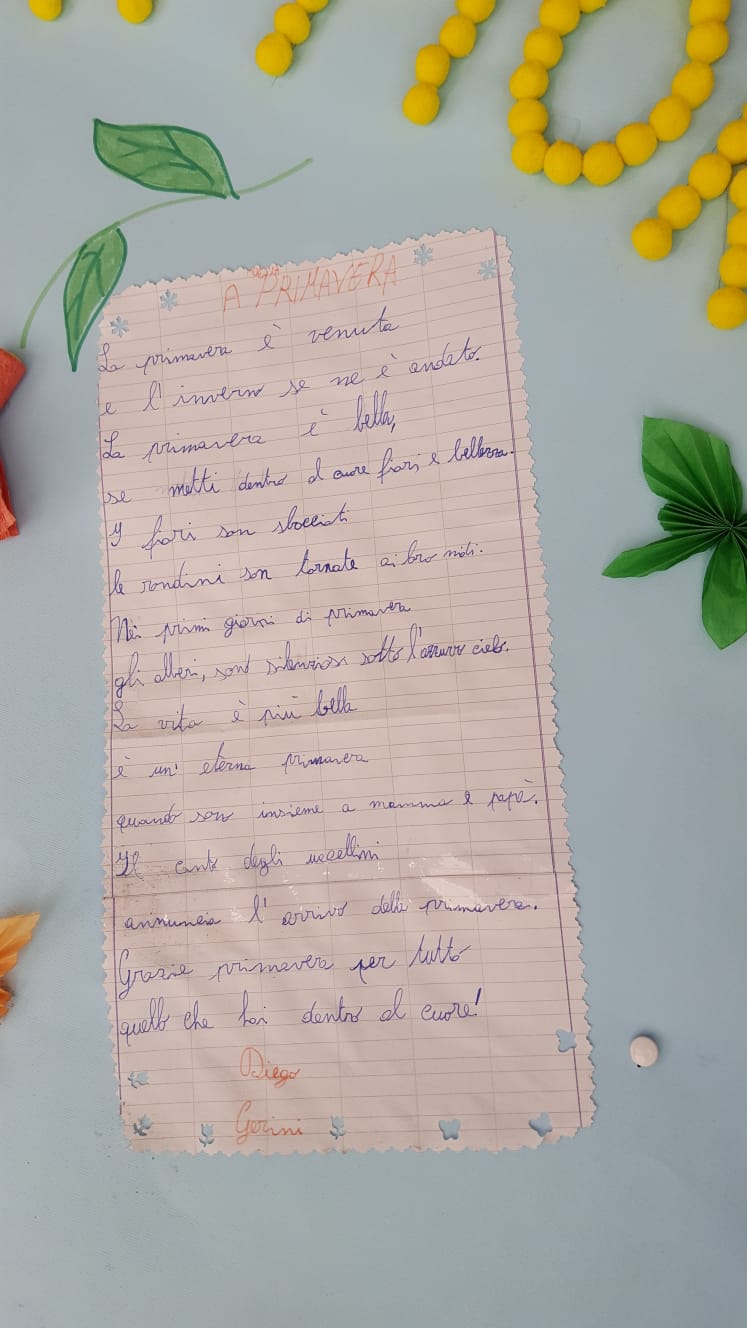 A PRIMAVERA
La primavera è venuta
e l'inverno se ne è andato.
La primavera è bella,
se metti dentro al cuore fiori e bellezza.
I fiori son sbocciati
le rondini son tornate ai loro nidi.
Nei primi giorni di primavera
gli alberi, sono silenziosi sotto l'azzurro cielo.
La vita è più bella
è un' eterna primavera
quando sono insieme a mamma e papà.
Il canto degli uccellini
annuncia l'arrivo della primavera.
Grazie primavera per tutto
quello che hai dentro al cuore!
Diego
Gerini